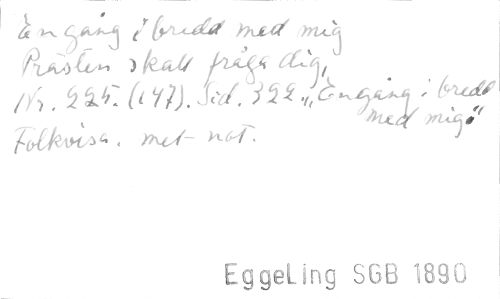 En gång i bredd med mig
Prästen skall fråga dig,
Nr. 225. (147). Sid. 322. "En gång i bredd
med mig."
Folkvisa. met- not.
EggeLing SGB 1890